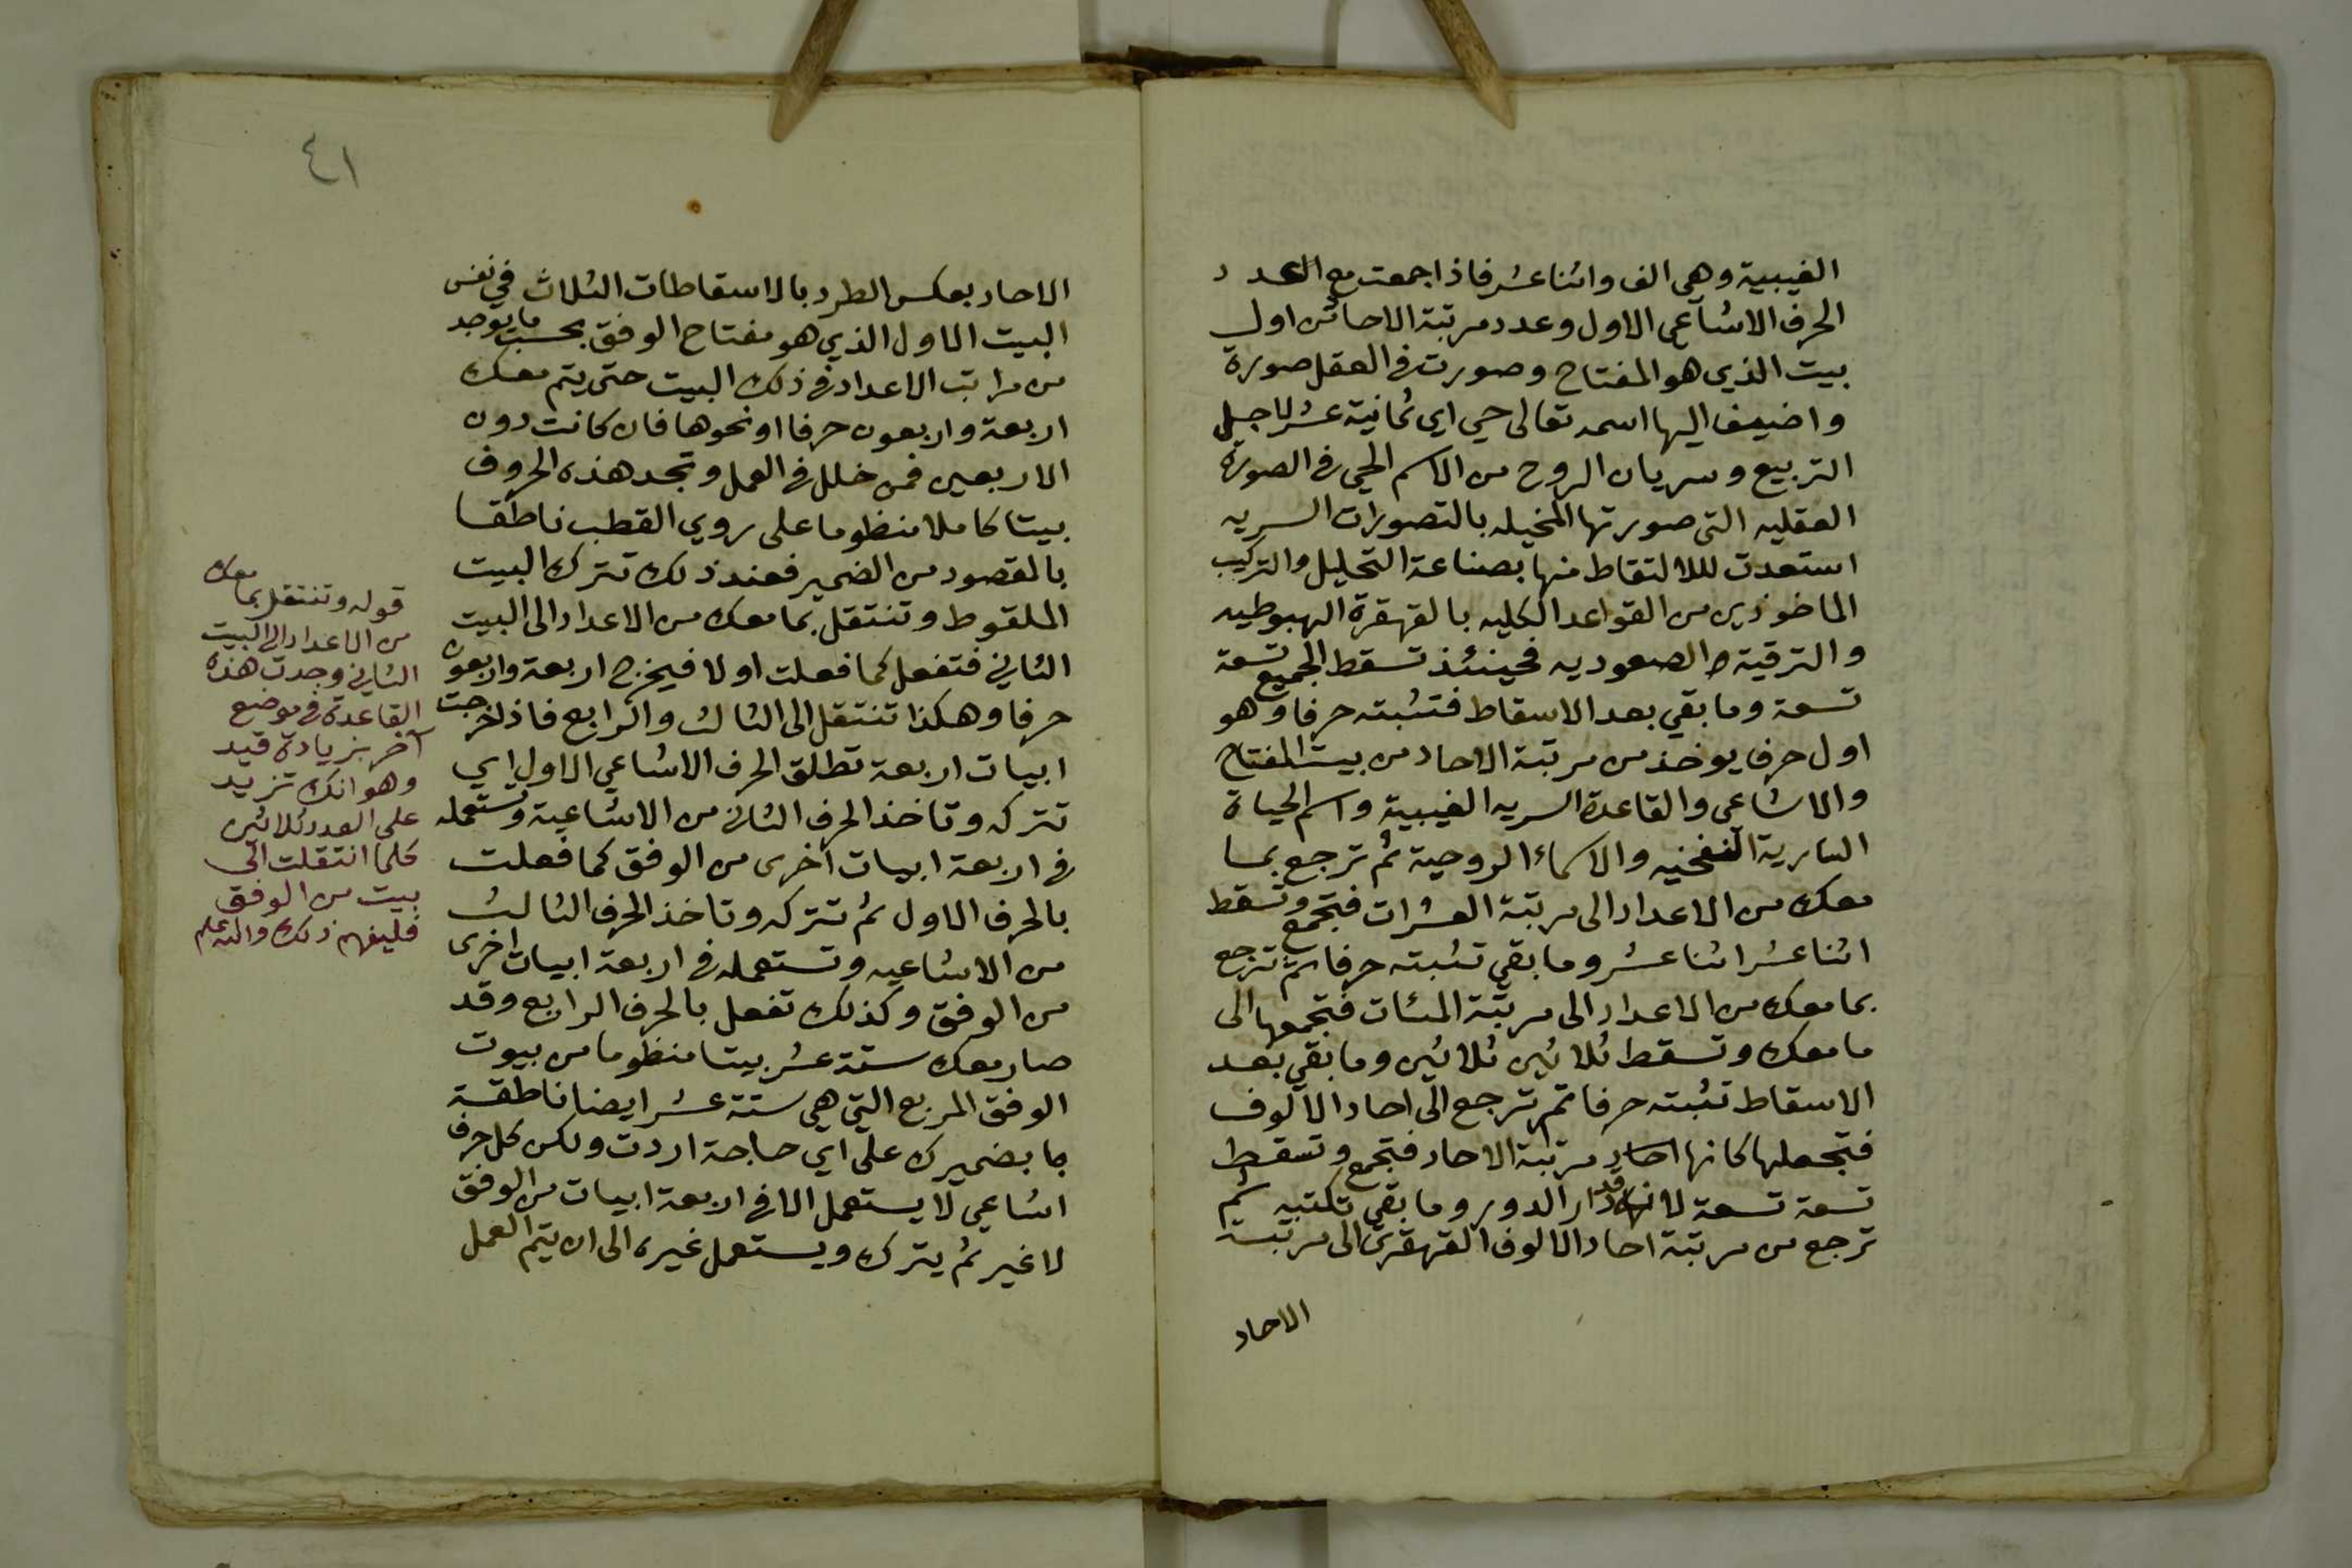 الغيبية وهي الف واثنا عشر فاذا جمعت مع العدد
الحرف الاشاعى الاول وعدد مرتبة الاحاد من اول
بيت الذي هو المفتاح وصورت فى العقل صورة
واضيف اليها اسمه تعالى حي اي ثمانية عشر لاجل
التربيع وسريان الروح من الاسم الحي فى الصورة
العقليه التى صورتها المخيله بالتصورات السريه
استعدت لللالتقاط منها بصناعة التحليل والتركيب
الماخوذين من القواعد الكليه بالقهقرة الهبوطيه
والترقية الصعوديه فحينئذ تسقط الجميع تسعة
تسعة وما بقي بعد الاسقاط فتثبته حرفا وهو
اول حرف يوخذ من مرتبة الاحاد من بيت المفتاح
والاشاعى والقاعدة السريه الغيبية واسم الحياة
السارية النفخيه والاسماء الروحية ثم ترجع بما
معك من الاعداد الى مرتبة العشرات فتجمع وتسقط
اثنا عشر اثنا عشر وما بقي تثبته حرفا ثم ترجع
بما معك من الاعداد الى مرتبة المئات فتجمعها الى
ما معك وتسقط ثلاثين ثلاثين وما بقي بعد
الاسقاط تثبته حرفا ثم ترجع الى احاد الالوف
فتجعلها كانها احاد مرتبة الاحاد فتجمع وتسقط
تسعة تسعة لانه قد دار الدور وما بقى تكتبه ثم
ترجع من مرتبة احاد الالوف القهقرى الى مرتبة
الاحاد
٤١
الاحاد بعكس الطرد بالاسقاطات الثلاث في نفس
البيت الاول الذي هو مفتاح الوفق بحسب ما يوجد
من مراتب الاعداد فى ذلك البيت حتى يتم معك
اربعة واربعون حرفا او نحوها فان كانت دون
الاربعين فمن خلل فى العمل وتجد هذه الحروف
بيتا كاملا منظوما على روي القطب ناطقا
بالمقصود من الضمير فعند ذلك تترك البيت
الملقوط وتنتقل بما معك من الاعداد الى البيت
الثاني فتفعل كما فعلت اولا فيخرج اربعة واربعون
حرفا وهكذا تنتقل الى الثالث والرابع فاذا خرجت
ابيات اربعة تطلق الحرف الاشاعي الاول اي
تتركه وتاخذ الحرف الثانى من الاشاعية وتستعمله
فى اربعة ابيات اخرى من الوفق كما فعلت
بالحرف الاول ثم تتركه وتاخذ الحرف الثالث
من الاشاعيه وتستعمله فى اربعة ابيات اخرى
من الوفق وكذلك تفعل بالحرف الرابع وقد
صار معك ستة عشر بيتا منظوما من بيوت
الوفق المربع التي هي ستة عشر ايضا ناطقة
بما بضميرك على اي حاجة اردت ولكن كل حرف
اشاعي لا يستعمل الا فى اربعة ابيات من الوفق
لا غير ثم يترك ويستعمل غيره الى ان يتم العمل
قوله وتنتقل بما معك
من الاعداد الى البيت
الثاني وجدت هذه
القاعدة فى موضع
آخر بزيادة قيد
وهو انك تزيد
على العدد ثلاثين
كلما انتقلت الى
بيت من الوفق
فليفهم ذلك والله اعلم